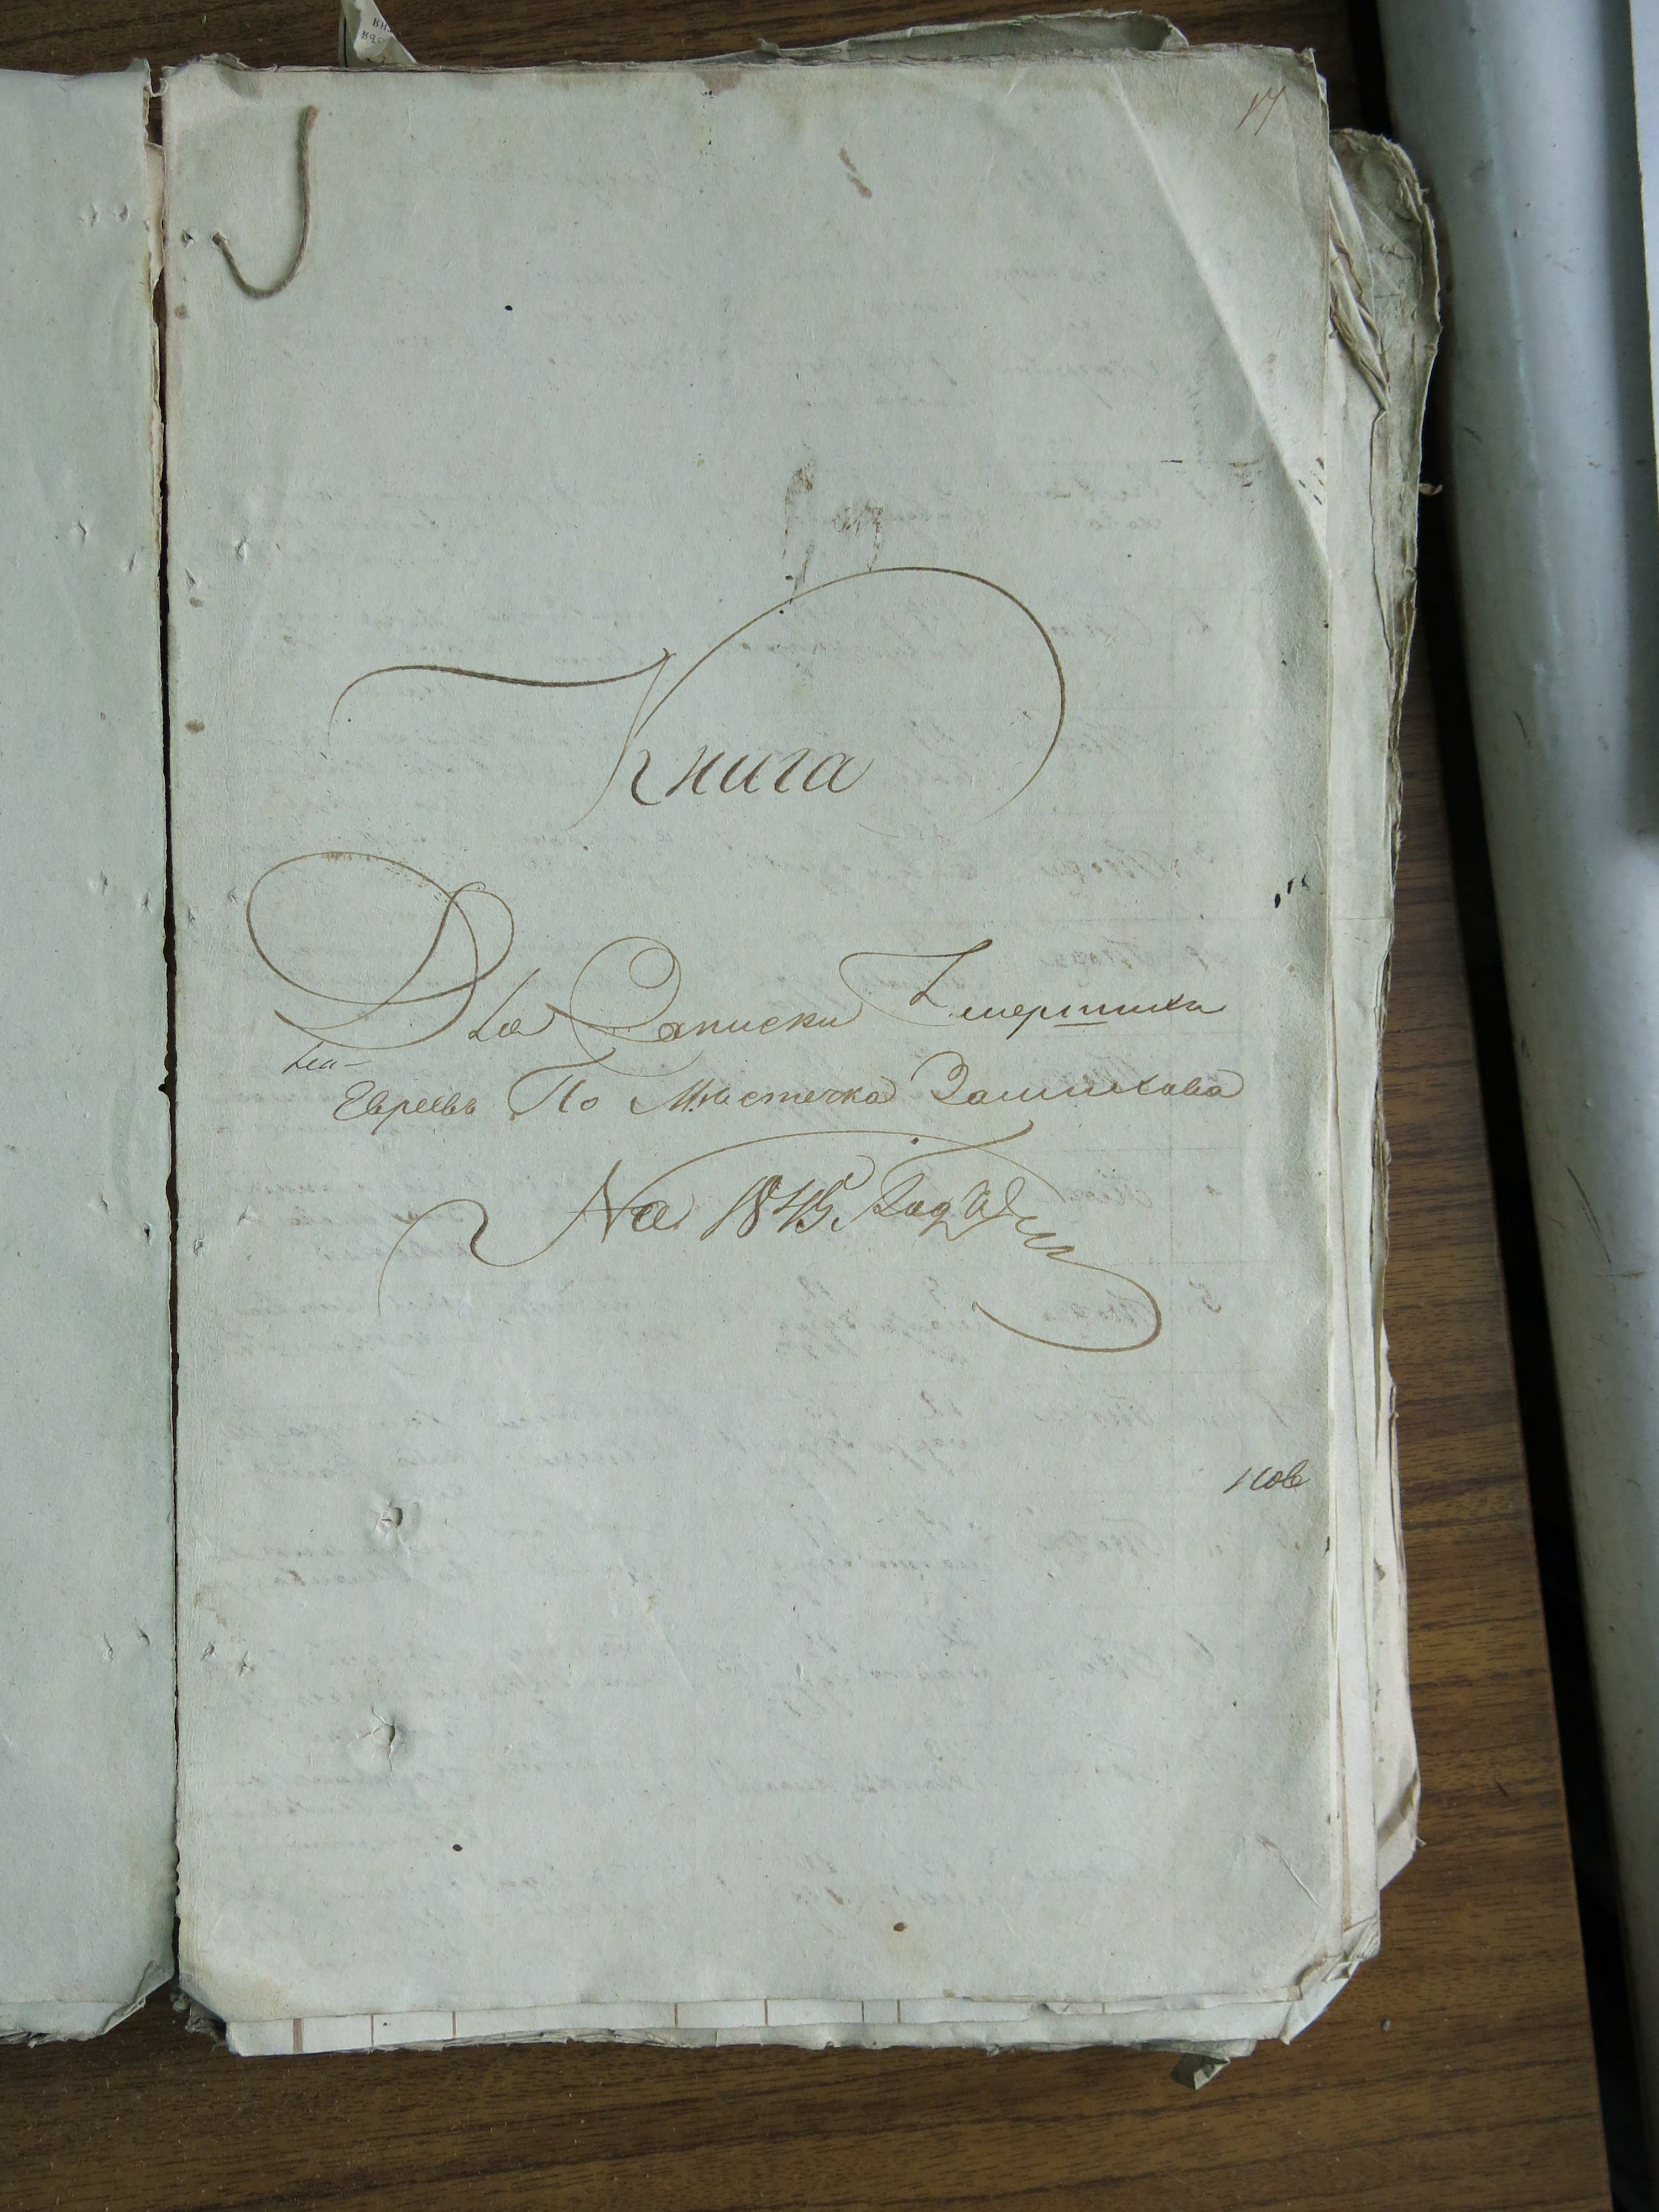 17
Книга
Для Записки Умершихъ
Евреевъ По Мистечка Залихова
На 1845. Годъ